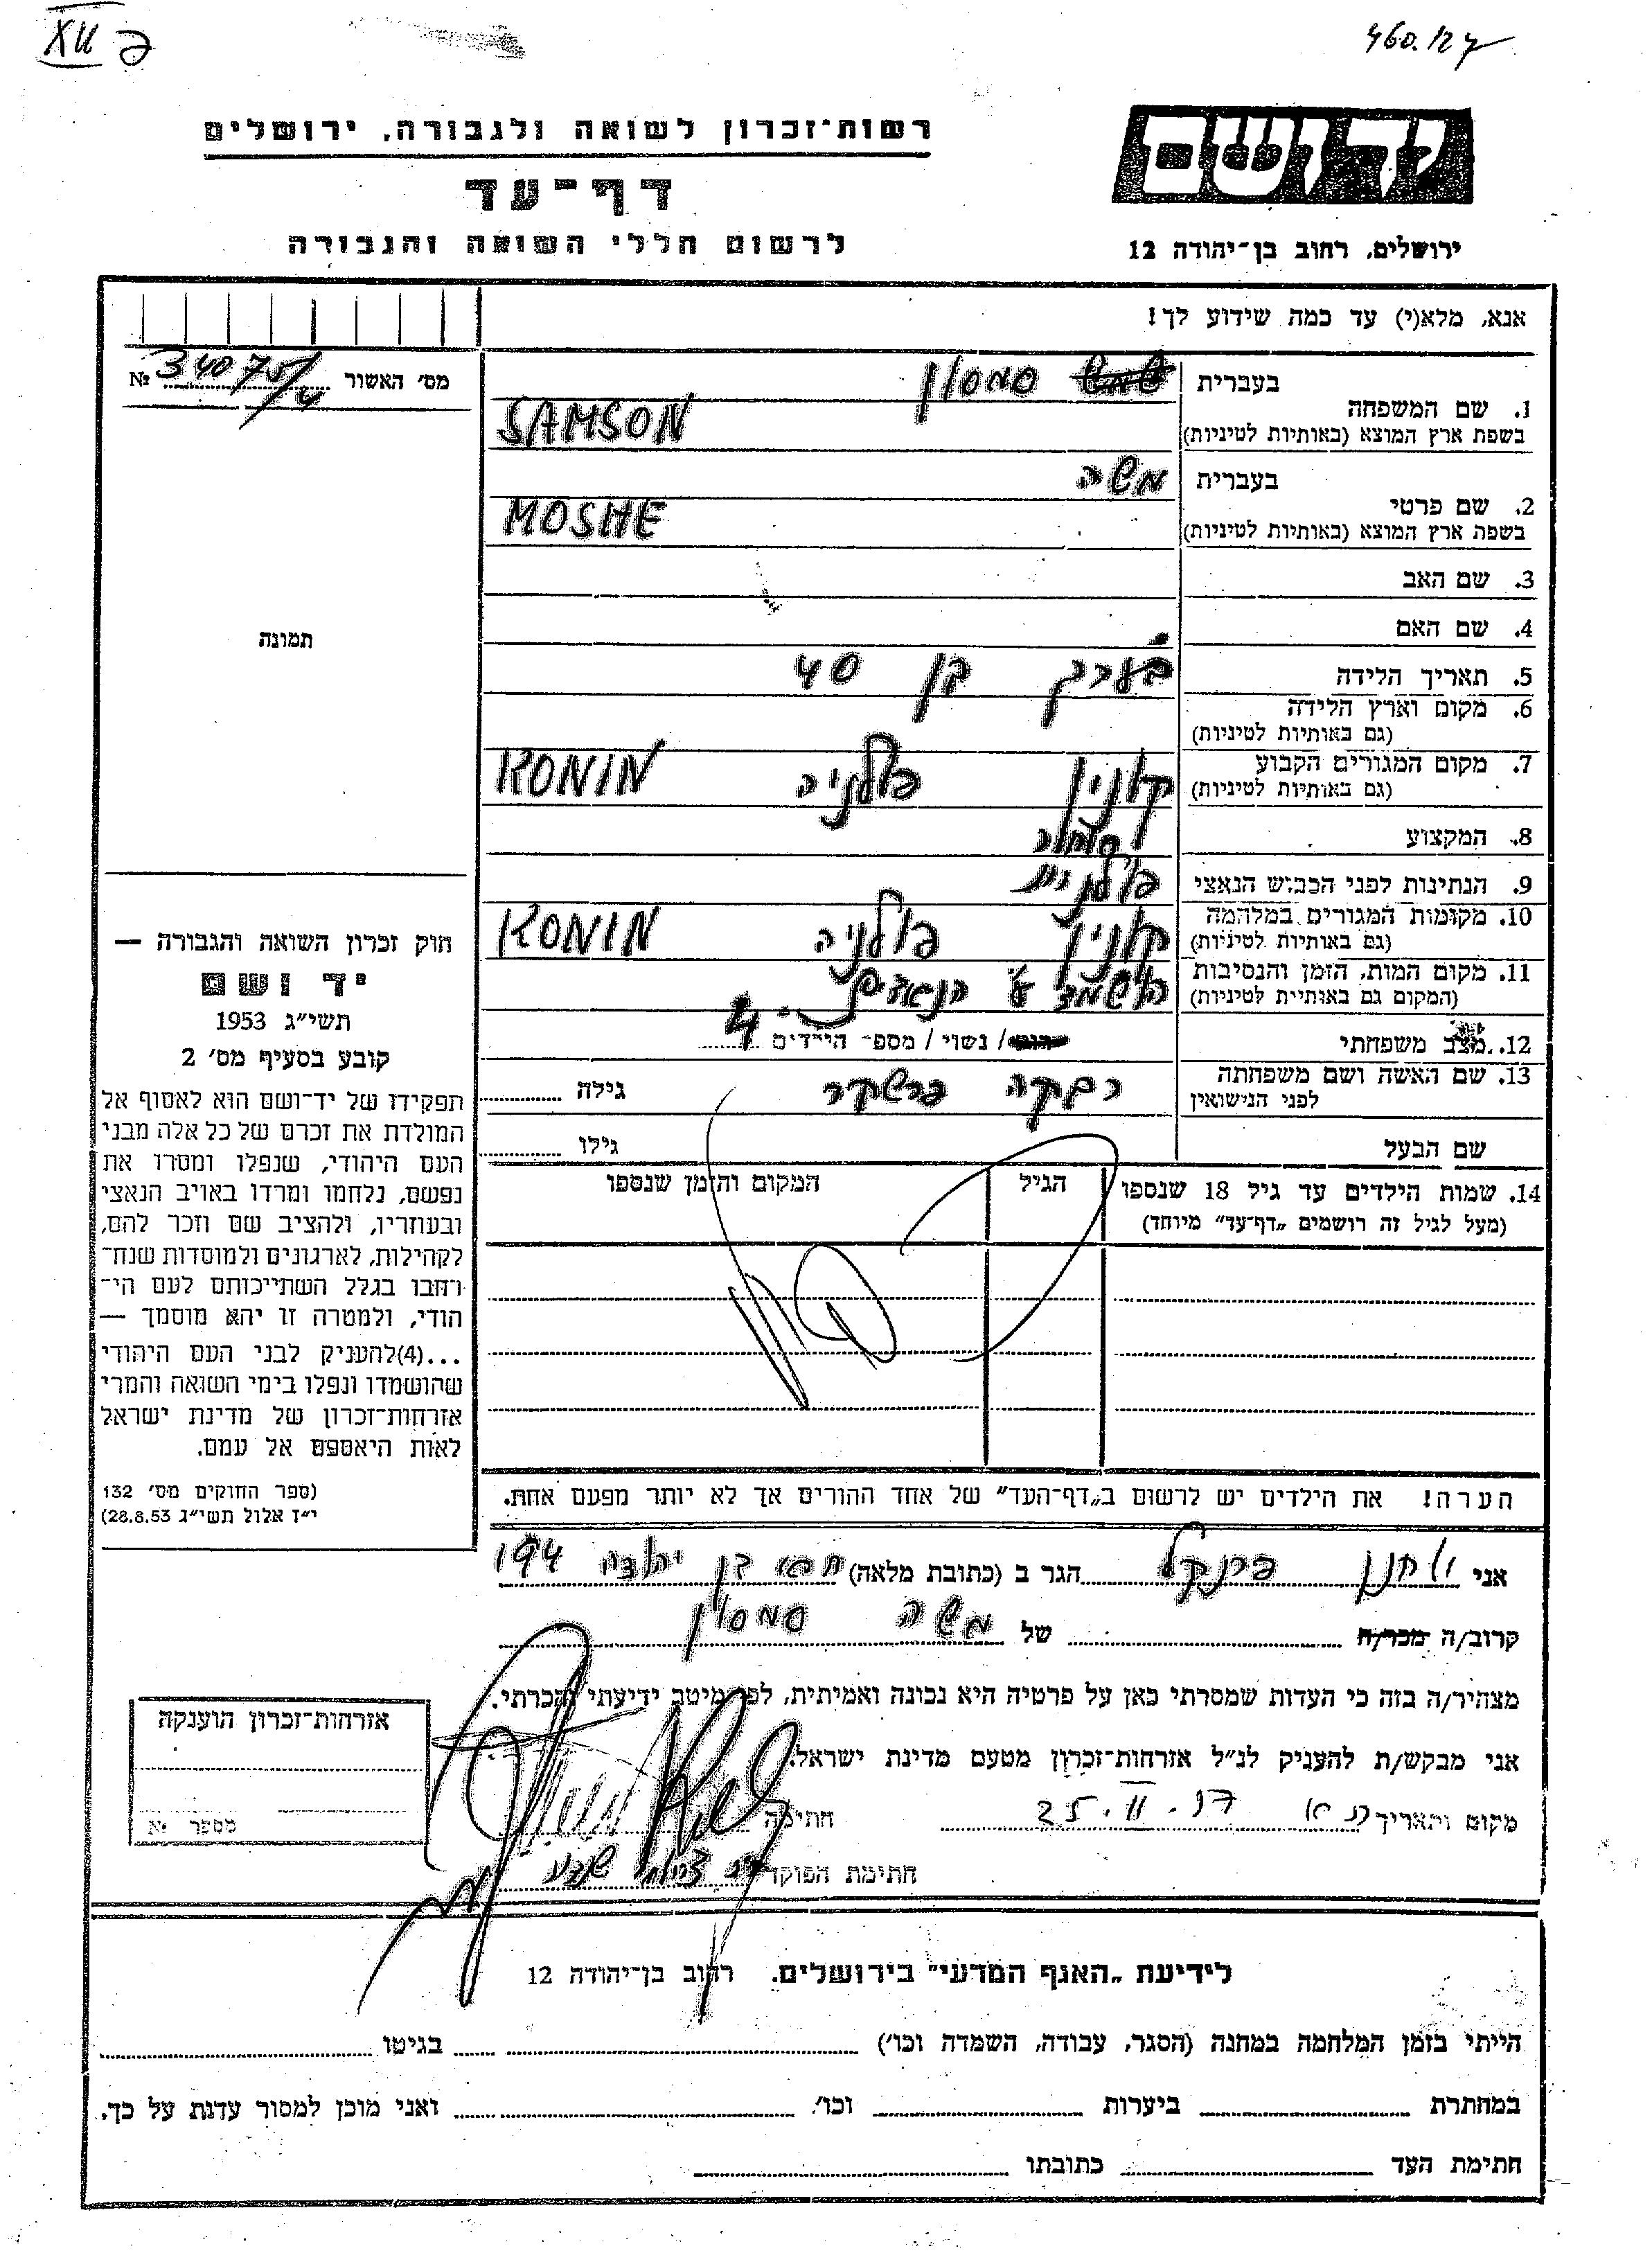 XII
460.124
יד ושם
רשות־זכרון לשואה ולגבורה, ירושלים
דף־עד
לרשום חללי השואה והגבורה
ירושלים, רחוב בן־יהודה 12
אנא, מלא(י) עד כמה שידוע לך!
מס׳ האשור № 34075/4
1. שם המשפחה
בעברית סמסון
בשפת ארץ המוצא (באותיות לטיניות) SAMSON
2. שם פרטי
בעברית משה
בשפת ארץ המוצא (באותיות לטיניות) MOSHE
3. שם האב
4. שם האם
5. תאריך הלידה בערך בן 40
6. מקום וארץ הלידה
(גם באותיות לטיניות)
7. מקום המגורים הקבוע קונין פולניה KONIN
(גם באותיות לטיניות)
8. המקצוע סוחר
9. הנתינות לפני הכבוש הנאצי פולנית
10. מקומות המגורים במלחמה קונין פולניה KONIN
(גם באותיות לטיניות)
11. מקום המות, הזמן והנסיבות הושמד ע״י הנאצים
(המקום גם באותיות לטיניות)
12. מצב משפחתי רווק / נשוי / מספר הילדים 4
13. שם האשה ושם משפחתה רבקה גילה
לפני הנישואין
שם הבעל גילו
14. שמות הילדים עד גיל 18 שנספו הגיל המקום והזמן שנספו
(מעל לגיל זה רושמים „דף־עד״ מיוחד)
תמונה
חוק זכרון השואה והגבורה —
יד ושם
תשי״ג 1953
קובע בסעיף מס׳ 2
תפקידו של יד־ושם הוא לאסוף אל
המולדת את זכרם של כל אלה מבני
העם היהודי, שנפלו ומסרו את
נפשם, נלחמו ומרדו באויב הנאצי
ובעוזריו, ולהציב שם וזכר להם,
לקהילות, לארגונים ולמוסדות שנח־
רחבו בגלל השתייכותם לעם הי־
הודי, ולמטרה זו יהא מוסמך —
...(4)להעניק לבני העם היהודי
שהושמדו ונפלו בימי השואה והמרי
אזרחות־זכרון של מדינת ישראל
לאות היאספם אל עמם.
(ספר החוקים מס׳ 132
י״ז אלול תשי״ג 28.8.53)
הערה! את הילדים יש לרשום ב„דף־העד״ של אחד ההורים אך לא יותר מפעם אחת.
אני יוחנן פינקל הגר ב (כתובת מלאה) בן יהודה 194
קרוב/ה מכר/ה של משה סמסון
מצהיר/ה בזה כי העדות שמסרתי כאן על פרטיה היא נכונה ואמיתית, לפי מיטב ידיעתי והכרתי.
אני מבקש/ת להעניק לנ״ל אזרחות־זכרון מטעם מדינת ישראל.
מקום ותאריך ת״א 25.II.57 חתימה
חתימת הפוקד
אזרחות־זכרון הוענקה
מספר №
לידיעת „האגף המדעי״ בירושלים. רחוב בן־יהודה 12
הייתי בזמן המלחמה במחנה (הסגר, עבודה, השמדה וכו׳) בגיטו
במחתרת ביערות וכו׳. ואני מוכן למסור עדות על כך.
חתימת העד כתובתו